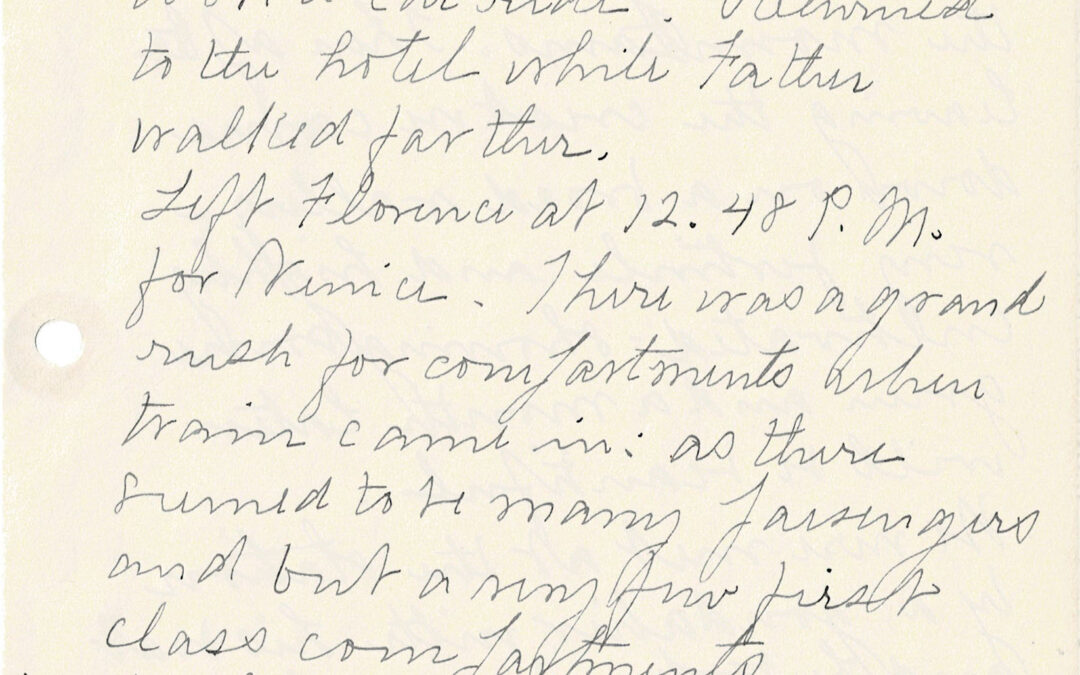 Returned
to the hotel while Father
walked farther.
Left Florence at 12.48 P.M.
for Venice. There was a grand
rush for compartments when
train came in: as there
seemed to be many passengers
and but a very few first
class compartments